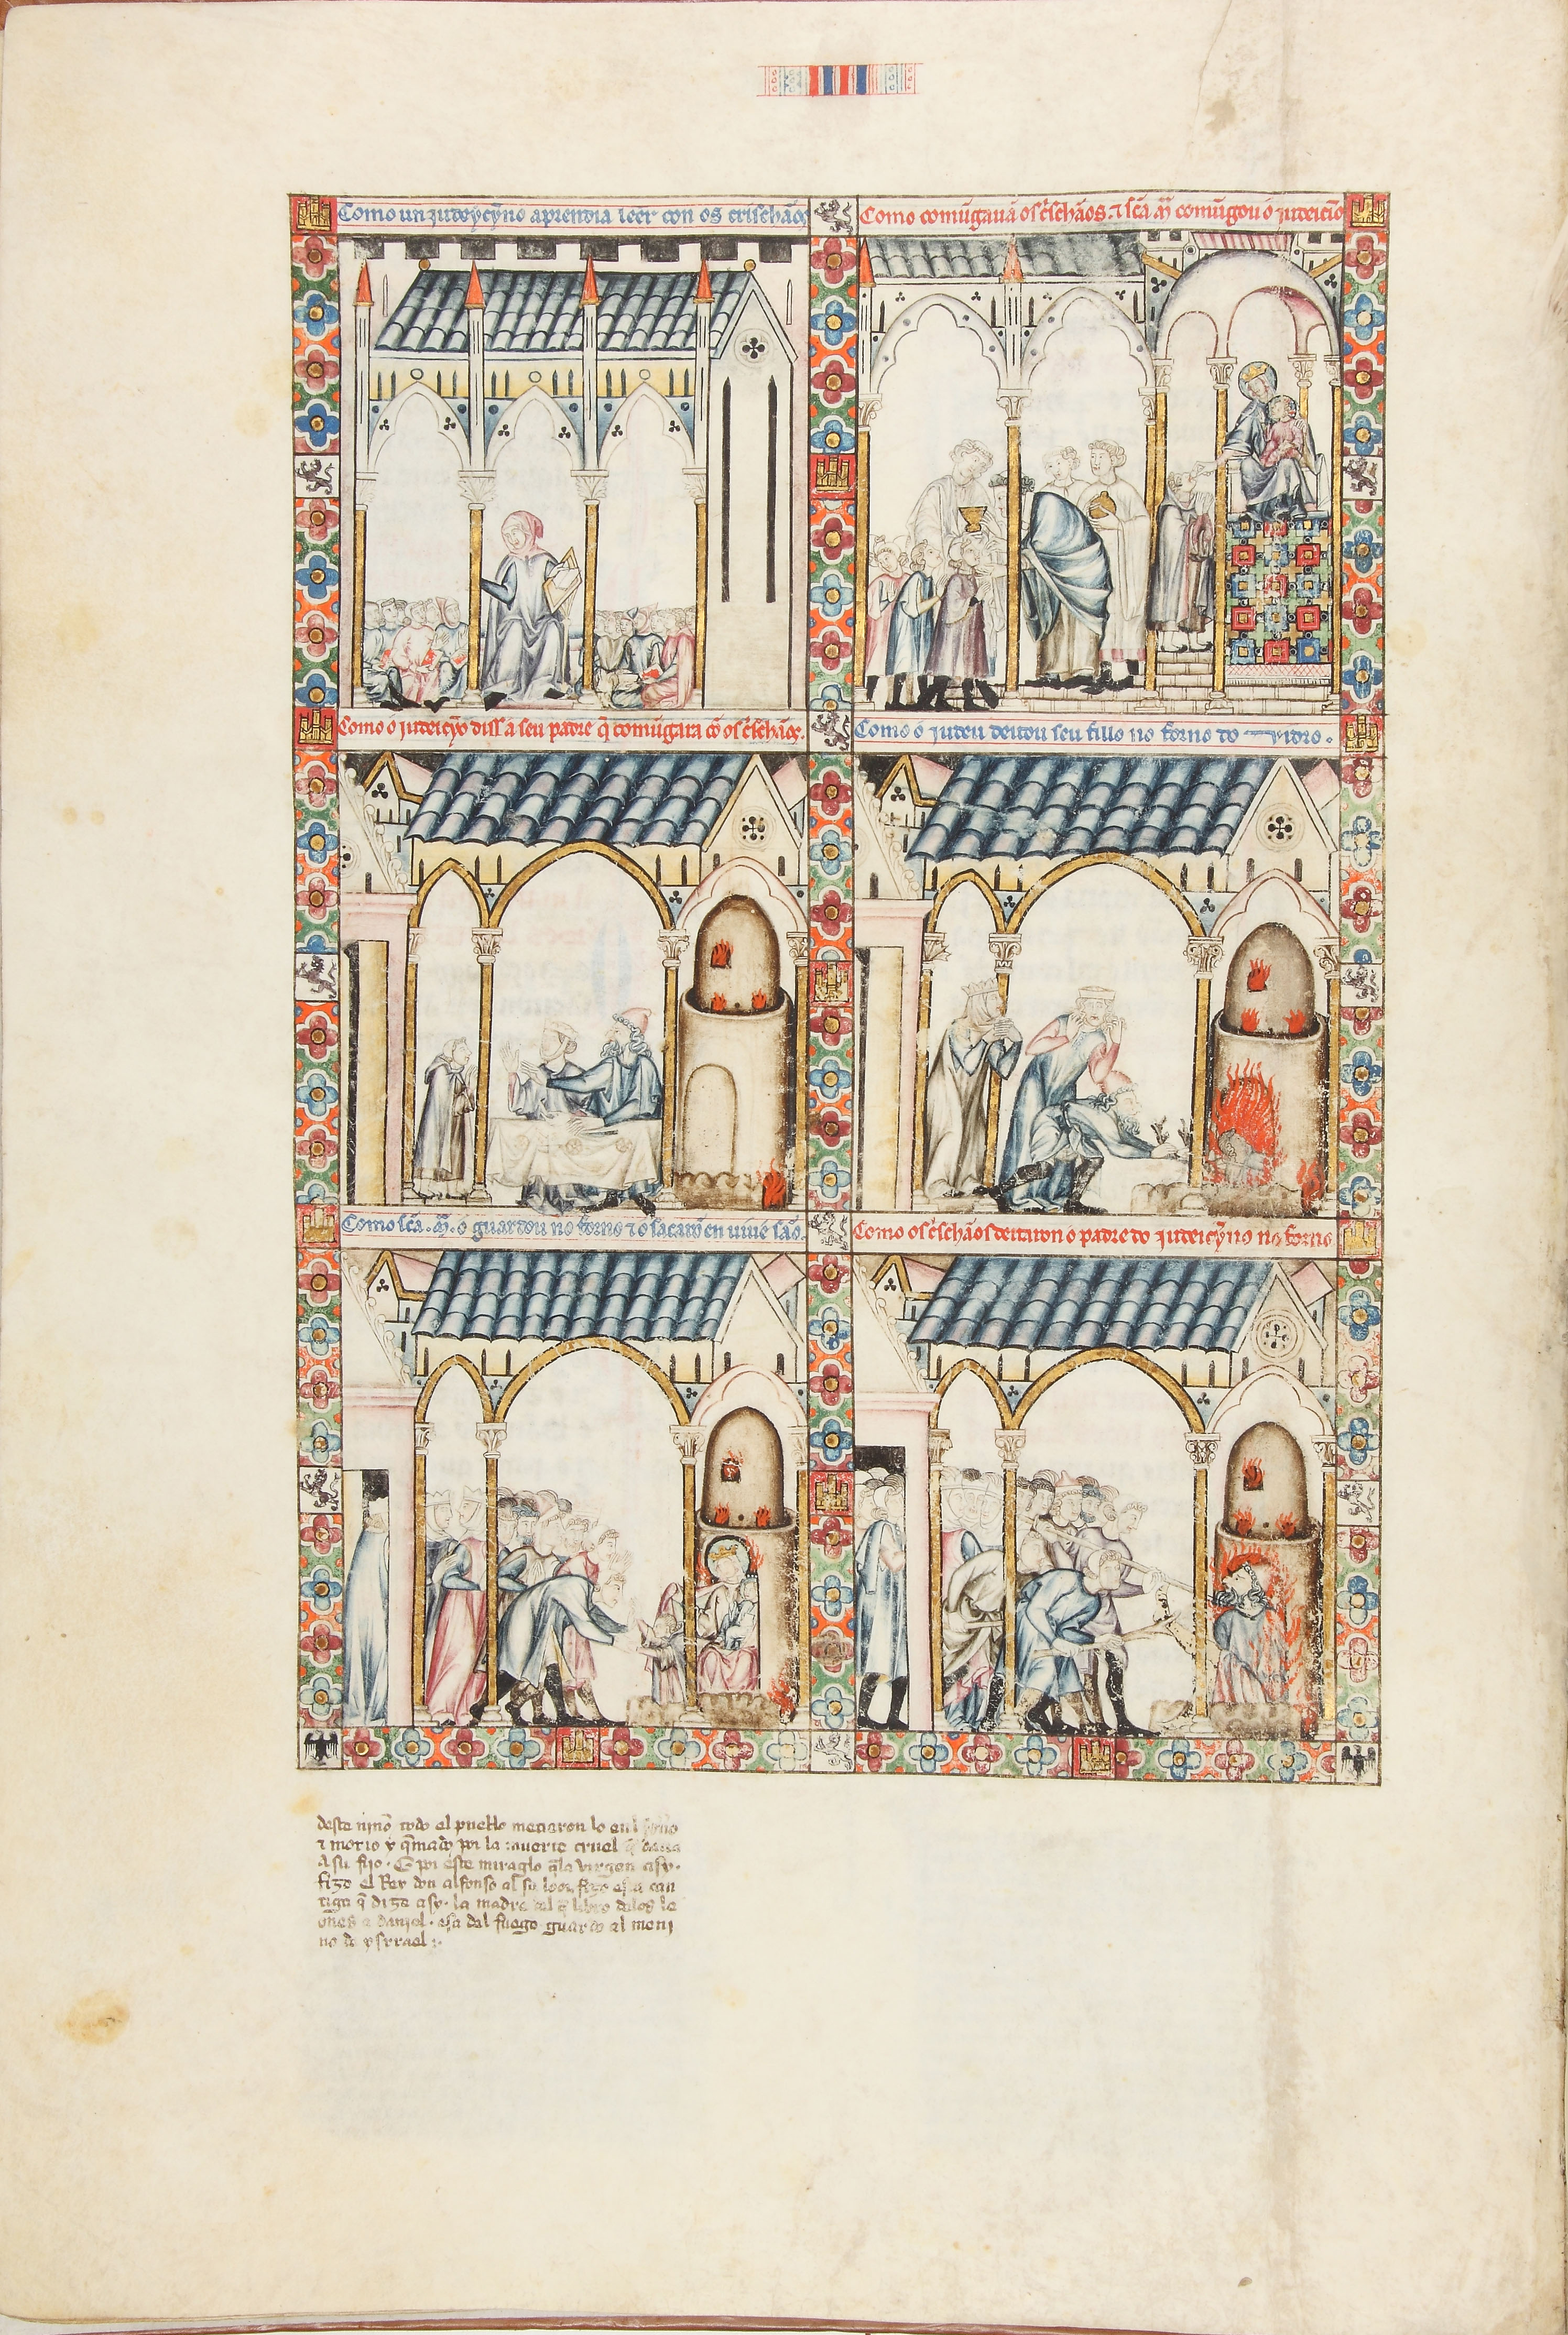 Como un judeucỹno aprendia leer con os crischãos
Como comũgavã os c̃schãos. ⁊ sc̃a m̃ comũgou ó judeicỹo
Como ó judeicỹo diss a seu padre q̃ comũgara cõ os c̃schãos.
Como ó judeu deitou seu fillo no forno do vidro.
Como sc̃a. m̃. o guardou no forno ⁊ o sacarõ en vivẽ são.
Como os c̃schãos deitaron ó padre do judeicỹno no forno
deste niño todo el pueblo metieron lo en
⁊ morio y q̃mado por la muerte cruel q̃ daua
A su fijo. E por este miraglo q̃ la virgen asy.
fizo el Rey don alfonso al su loor fizo esta can
tiga q̃ dize asy. la madre del q̃ libro delos le
ones a daniel. esa del fuego guardo al meni
no de ysrrael :